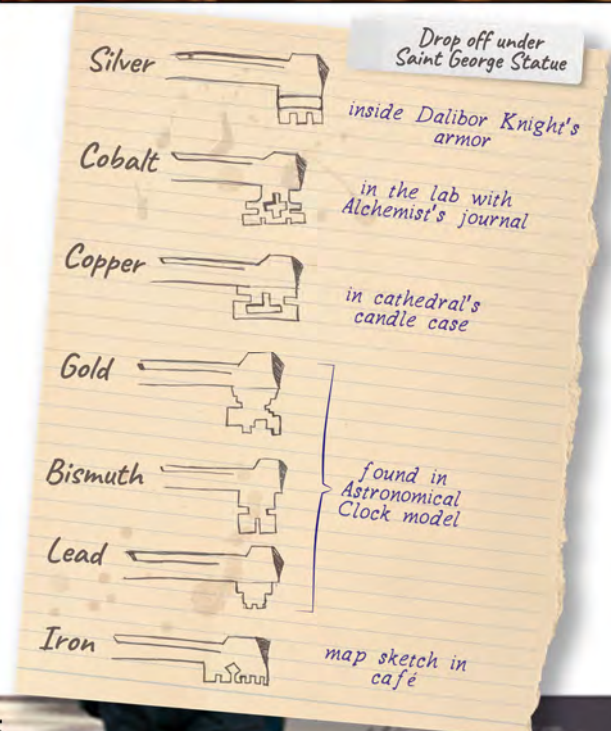 Drop off under
Saint George Statue
Silver
inside Dalibor Knight's
armor
Cobalt
in the lab with
Alchemist's journal
Copper
in cathedral's
candle case
Gold
Bismuth
found in
Astronomical
Clock model
Lead
Iron
map sketch in
café